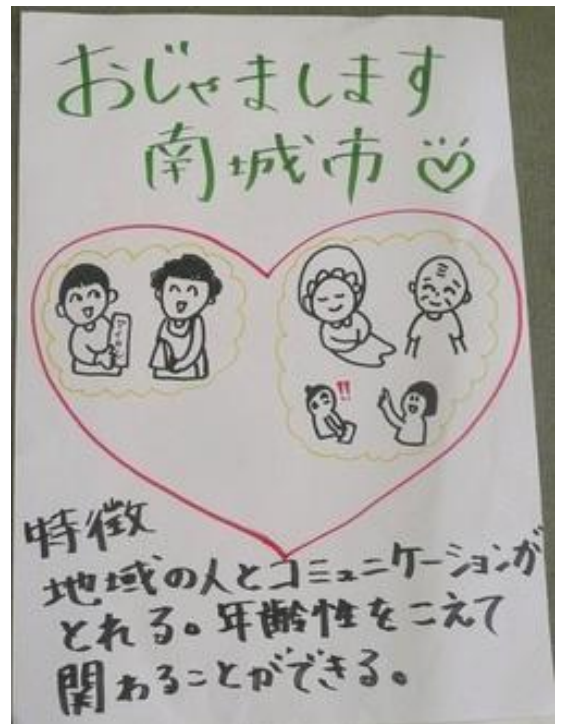 おじゃまします
南城市
!!
特徴
地域の人とコミュニケーションが
とれる。年齢性をこえて
関わることができる。